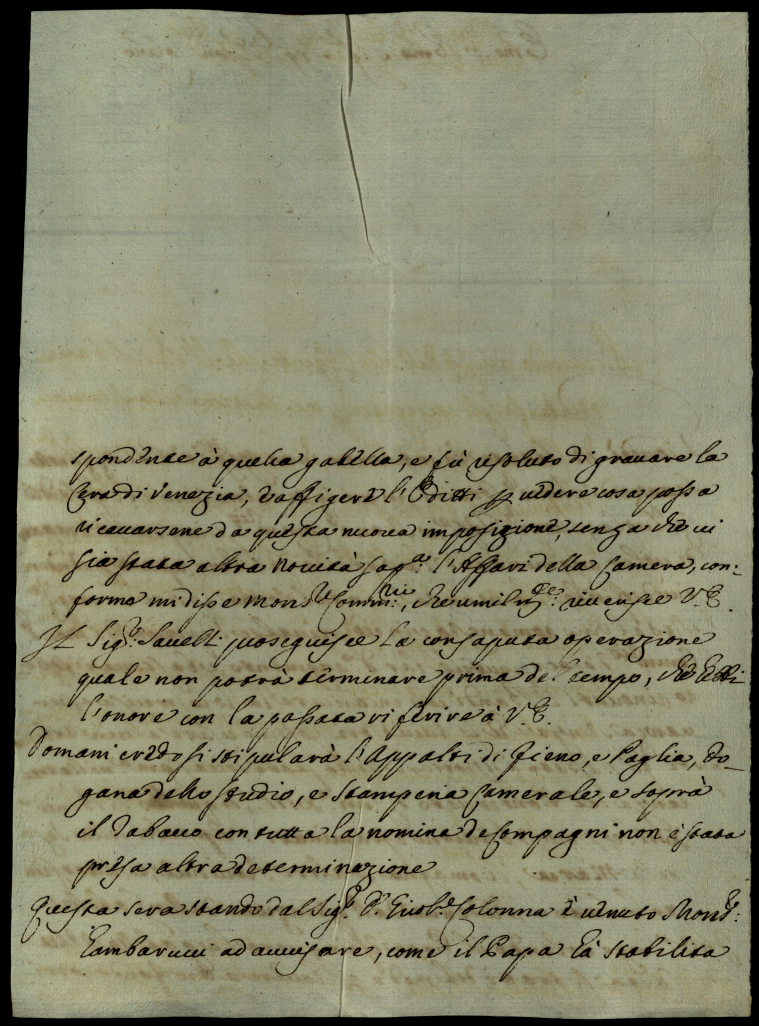 spondente à quella gabella, e fù risoluto di gravare la
Cera di Venezia, et affigere l'Editti per vedere cosa possa
ricavarsene da questa nuova imposizione, senza che vi
sia stata altra novità sop.ª l'Affari della Camera, con-
forme mi disse Mons.re Comm.rio, che umilm.te riverisce V.E.
Il Sig.r Savelli proseguisce la consaputa operazione
quale non potrà terminare prima del tempo, che ebbi
l'onore con la passata riferire à V.E.
Domani credo si stipularà l'Appalti di Fieno, e Paglia, Do-
gana dello Studio, e Stamperia Camerale, e soprà
il Tabacco con tutta la nomina de Compagni non è stata
presa altra determinazione
Questa sera stando dal Sig.r D. Giul.e Colonna è venuto Mons.r
Gambarucci ad avvisare, come il Papa hà stabilita